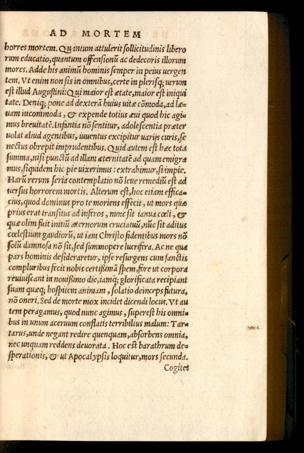 AD MORTEM
horres mortem. Quātum attulerit sollicitudinis libero
rum educatio, quantum offensionū ac dedecoris illorum
mores. Adde his animū hominis semper in peius uergen
tem. Vt enim non sis in omnibus, certe in plerisq; uerum
est illud Augustini: Qui maior est ætate, maior est iniqui
tate. Deniq; pone ad dexterā huius uitæ cōmoda, ad læ-
uam incommoda, & expende totius æui quod hic agi
mus breuitatē. Infantia nō sentitur, adolescentia præter
uolat aliud agentibus, iuuentus excipitur uarijs curis, se
nectus obrepit imprudentibus. Quid autem est hæc tota
summa, nisi punctū ad illam æternitatē ad quam emigra
mus, siquidem hic pie uixerimus: extrahimur, si impie.
Harū rerum seria contemplatio nō leue remediū est ad
uersus horrorem mortis. Alterum est, hoc etiam effica-
cius, quod dominus pro te moriens effecit, ut mors quæ
prius erat transitus ad inferos, nunc sit ianua cœli, &
quæ olim fuit initiū æternorum cruciatuū, nūc sit aditus
cœlestium gaudiorū, ut iam Christo fidentibus mors nō
solū damnosa nō sit, sed summopere lucrifera. Ac ne quæ
pars hominis desideraretur, ipse resurgens cum sanctis
compluribus fecit nobis certissimā spem, fore ut corpora
reuiuiscant in nouissimo die, iamq; glorificata recipiant
suam quæq; hospitem animam, solatio deinceps futura,
nō oneri. Sed de morte mox incidet dicendi locus. Vt au
tem peragamus, quod nunc agimus, superest his omni
bus in unum aceruum conflatis terribilius malum: Tar
tarus, unde negant redire quenquam, absorbens omnia,
nec unquam reddens deuorata. Hoc est barathrum de-
sperationis, & ut Apocalypsis loquitur, mors secunda.
Cogitet